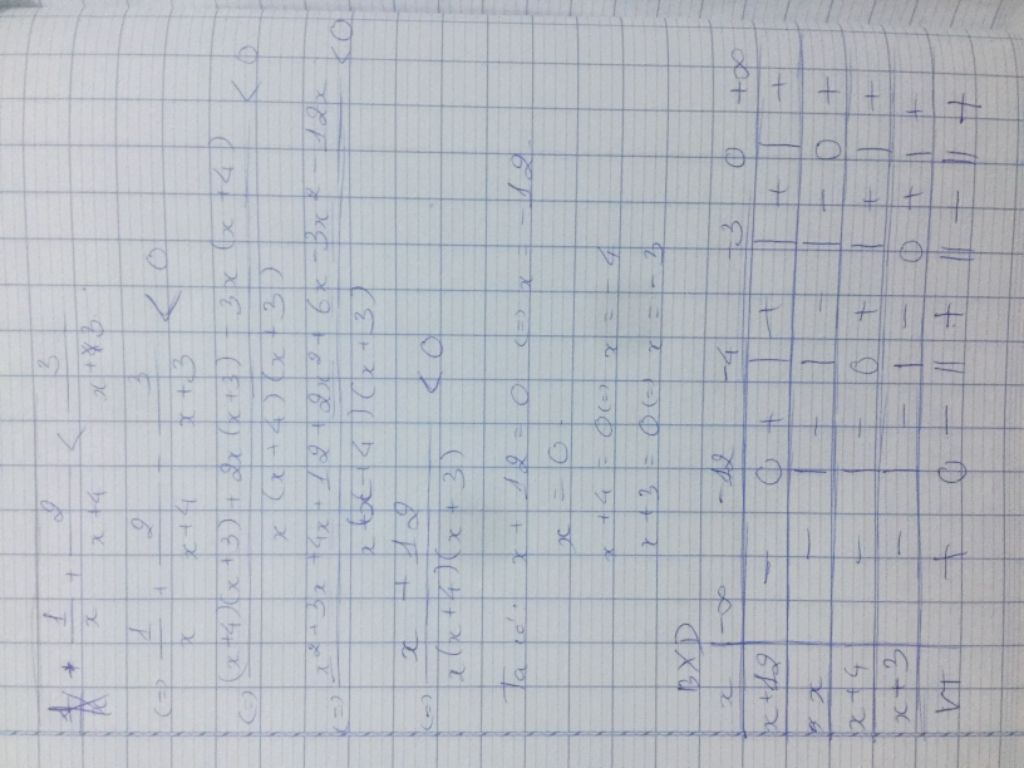 * 1/x + 2/(x+4) < 3/(x+3)
(=) 1/x + 2/(x+4) - 3/(x+3) < 0
(=) ((x+4)(x+3) + 2x(x+3) - 3x(x+4))/(x(x+4)(x+3)) < 0
(=) (x²+3x+4x+12+2x²+6x-3x²-12x)/(x(x-4)(x+3)) < 0
(=) (x+12)/(x(x+4)(x+3)) < 0
Ta có: x+12=0 (=) x=-12
x=0
x+4=0 (=) x=-4
x+3=0 (=) x=-3
BXD
x | -∞ -12 -4 -3 0 +∞
x+12 | - 0 + | + | + | +
x | - | - | - | - 0 +
x+4 | - | - 0 + | + | +
x+3 | - | - | - 0 + | +
VT | + 0 - || + || - || +